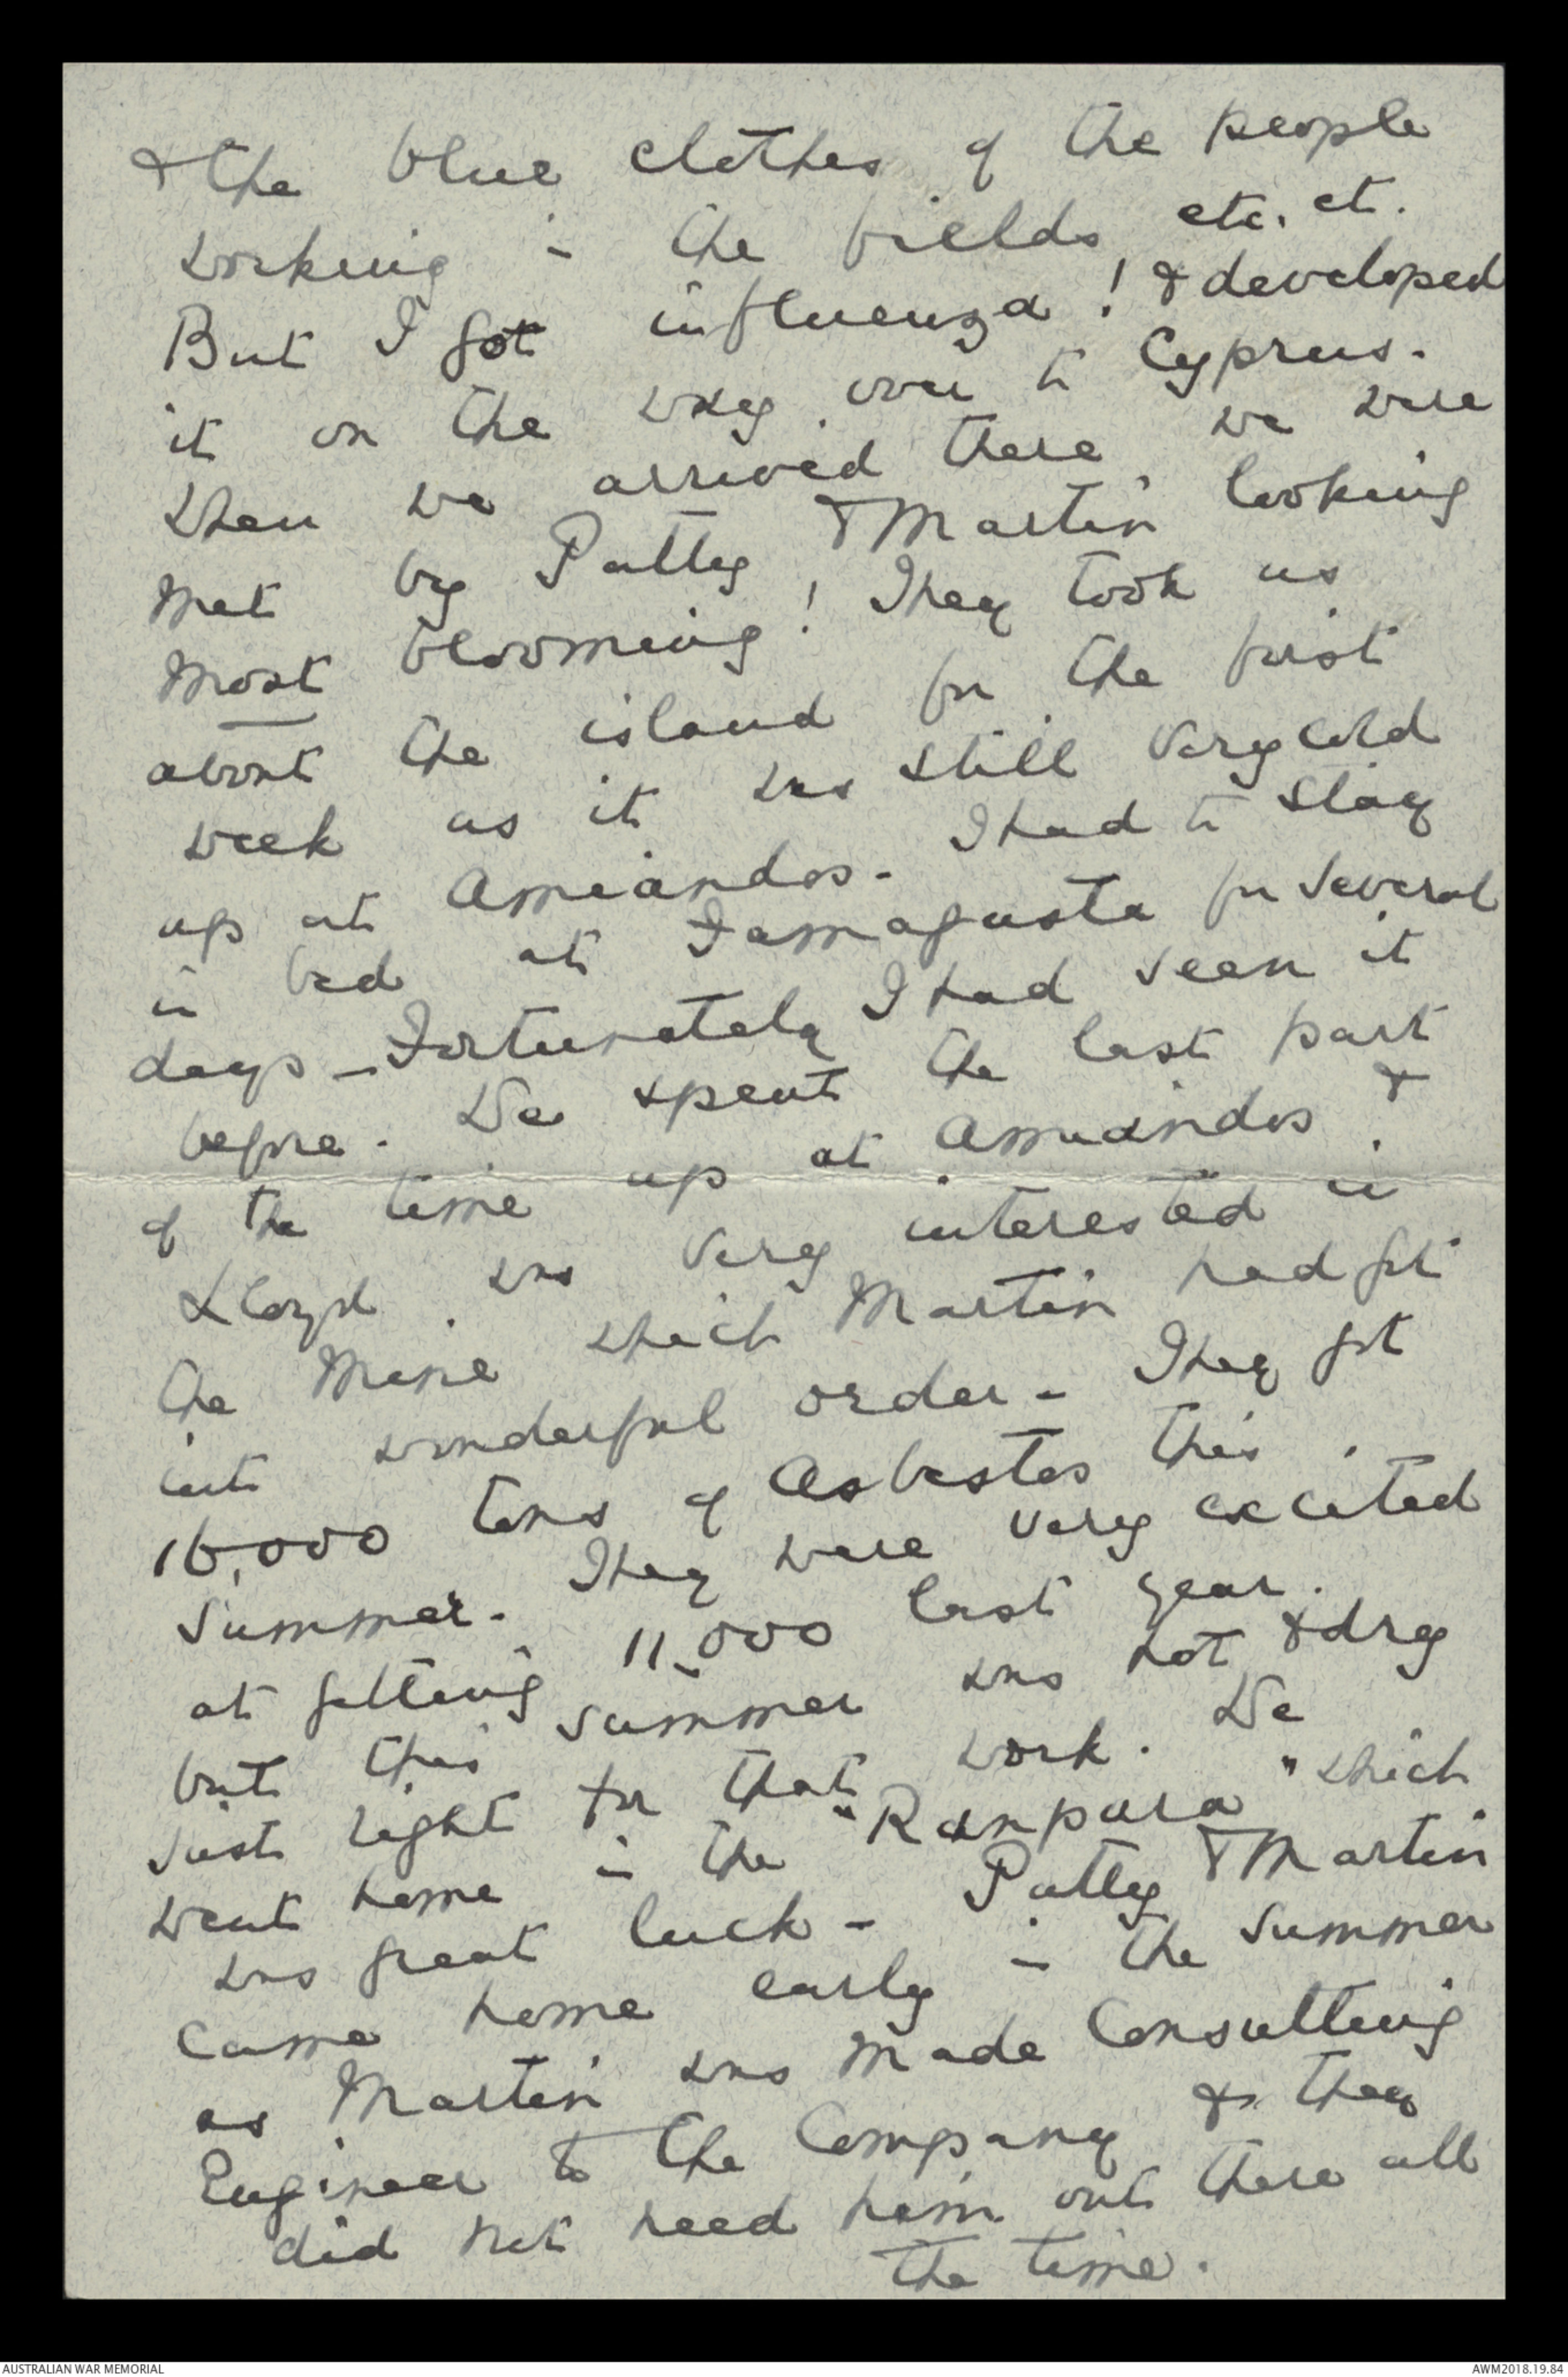 & the blue clothes of the people
working in the fields etc. et.
But I got influenza! & developed
it on the way over to Cyprus.
When we arrived there, we were
met by Patty & Martin looking
most blooming! They took us
about the island for the first
week as it was still very cold
up at Amiandos. I had to stay
in bed at Famagusta for several
days - Fortunately I had seen it
before. We spent the last part
of the time up at Amiandos &
Lloyd was very interested in
the Mine which Martin had got
into wonderful order - They got
16,000 tons of Asbestos this
summer. They were very excited
at getting 11,000 last year.
but this summer was hot & dry
just right for that work. We
went home in the "Ranpura" which
was great luck - Patty & Martin
came home early in the summer
as Martin was made Consulting
Engineer to the Company & they
did not need him out there all
the time.
AUSTRALIAN WAR MEMORIAL
AWM2018.19.84